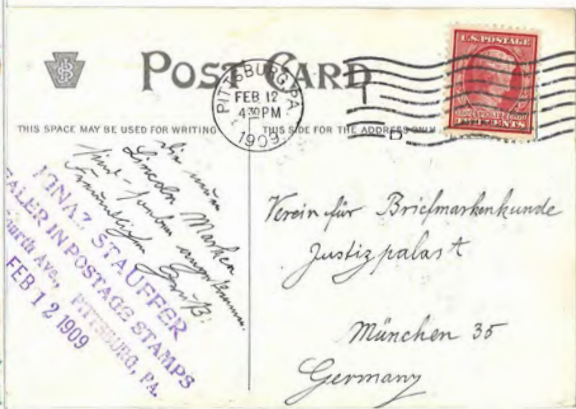 POST CARD
PITTSBURG, PA.
FEB 12
4:30PM
1909
U.S. POSTAGE
THIS SPACE MAY BE USED FOR WRITING
THIS SIDE FOR THE ADDRESS ONLY
Die neuen
Lincoln Marken
sind soeben angekommen.
Freundlichen Gruß!
STAUFFER
DEALER IN POSTAGE STAMPS
Fourth Ave., PITTSBURG, PA.
FEB 12 1909
Verein für Briefmarkenkunde
Justizpalast
München 35
Germany